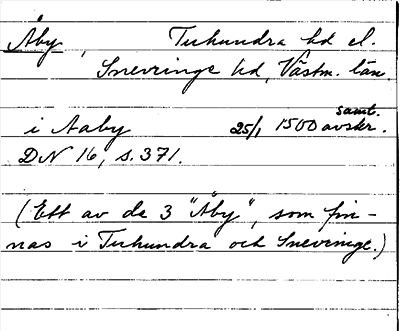 Åby, Tuhundra hd el.
Snevringe hd, Västm. län.
samt.
i Aaby 25/1 1500 avskr.
DN 16, s. 371.
(Ett av de 3 "Åby", som fin-
nas i Tuhundra och Snevringe.)